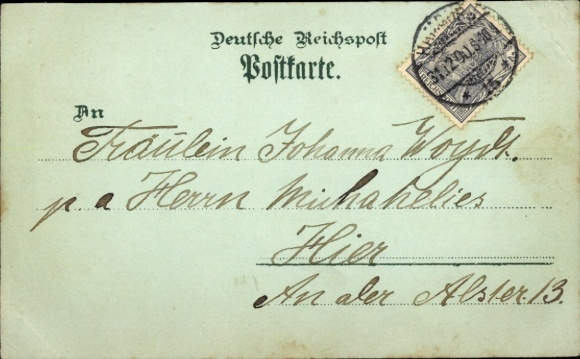 Deutsche Reichspost
Postkarte.
An
Fräulein Johanna Woydt.
p. a Herrn Michahelles
Hier
An der Alster 13.